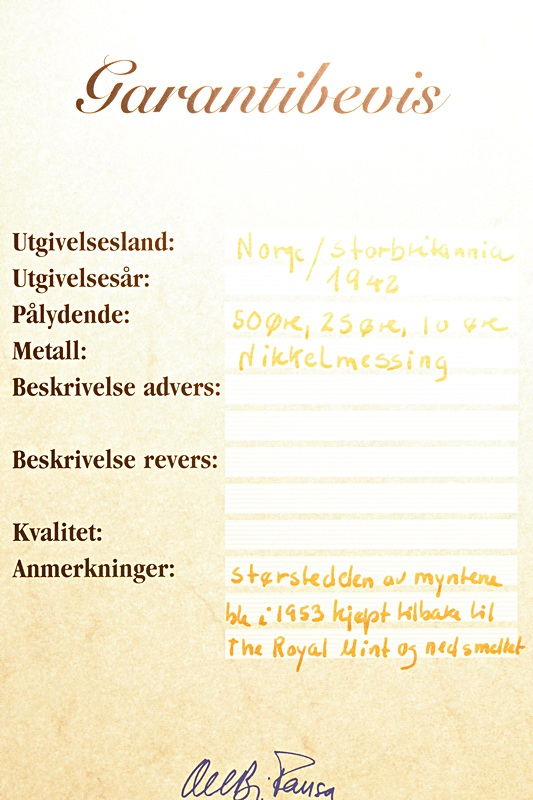 Garantibevis
Utgivelsesland: Norge/Storbritannia
Utgivelsesår: 1942
Pålydende: 50 Øre, 25 Øre, 10 øre
Metall: Nikkelmessing
Beskrivelse advers:
Beskrivelse revers:
Kvalitet:
Anmerkninger: størstedden av myntene
ble i 1953 kjøpt tilbake til
The Royal Mint og nedsmeltet